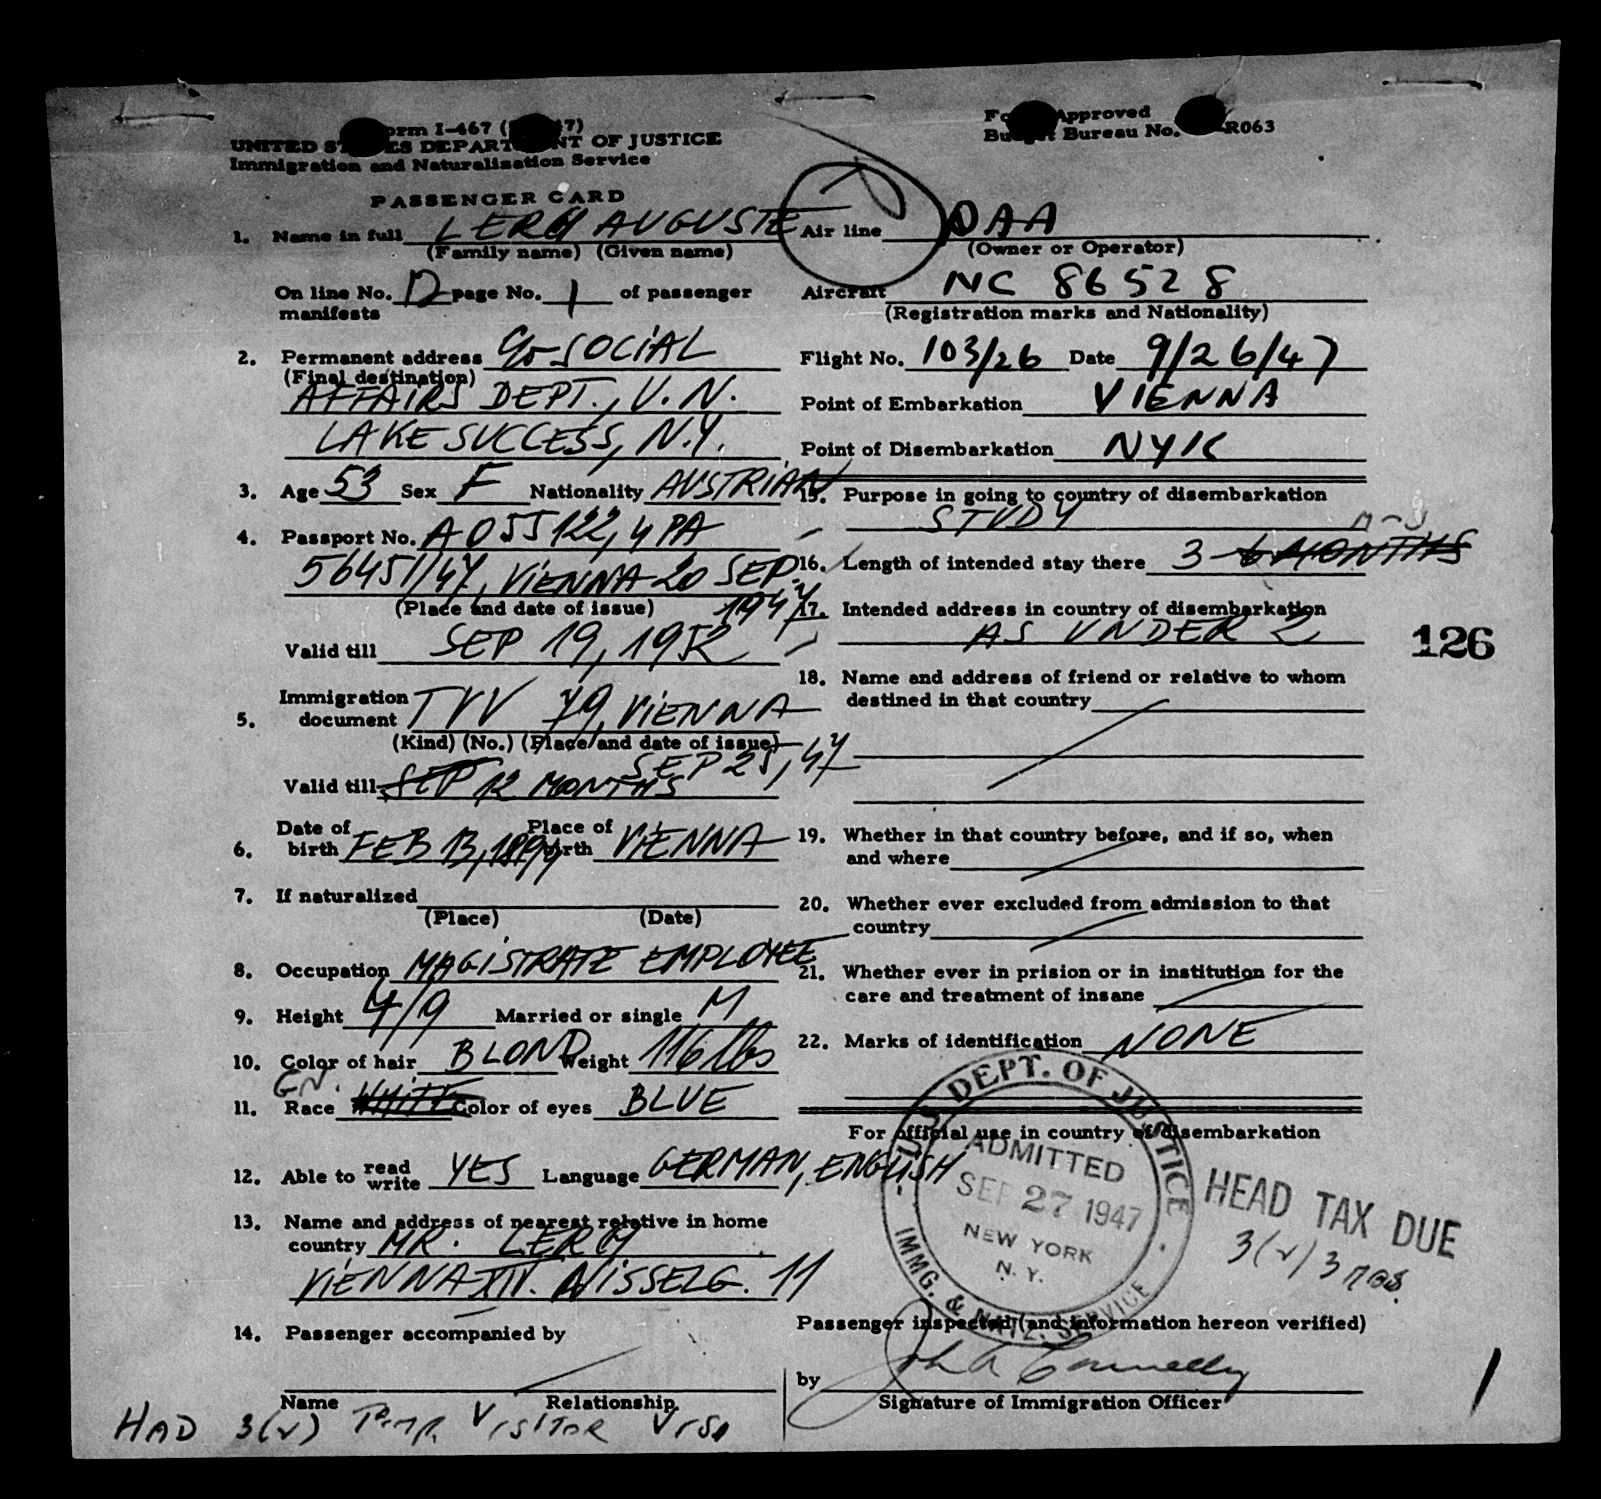 Form I-467 (
UNITED STATES DEPARTMENT OF JUSTICE
Immigration and Naturalization Service
Form Approved
Budget Bureau No. R063
PASSENGER CARD
1. Name in full LERCH AUGUSTE
(Family name) (Given name)
On line No. 12 page No. 1 of passenger
manifests
2. Permanent address C/o SOCIAL
(Final destination)
AFFAIRS DEPT., U.N.
LAKE SUCCESS, N.Y.
3. Age 53 Sex F Nationality AUSTRIAN
4. Passport No. A 055122, 4 PA
56451/47, VIENNA 20 SEP.
1947
(Place and date of issue)
Valid till SEP 19, 1952
5. Immigration document TVV 79, VIENNA
(Kind) (No.) (Place and date of issue)
SEP 25, 47
Valid till SEP 12 MONTHS
6. Date of birth FEB 13, 1894 Place of birth VIENNA
7. If naturalized
(Place) (Date)
8. Occupation MAGISTRATE EMPLOYEE
9. Height 4/9 Married or single M
10. Color of hair BLOND Weight 116 lbs
11. Race WHITE Color of eyes BLUE
12. Able to read write YES Language GERMAN, ENGLISH
13. Name and address of nearest relative in home
country MR. LERCH
VIENNA XIV. NISSELG. 11
14. Passenger accompanied by
Name Relationship
HAD 3(2) Temp. VISITOR VISA
Air line PAA
(Owner or Operator)
Aircraft NC 86528
(Registration marks and Nationality)
Flight No. 103/26 Date 9/26/47
Point of Embarkation VIENNA
Point of Disembarkation NYK
15. Purpose in going to country of disembarkation
STUDY
16. Length of intended stay there 3 6 MONTHS
17. Intended address in country of disembarkation
AS UNDER 2
126
18. Name and address of friend or relative to whom
destined in that country
19. Whether in that country before, and if so, when
and where
20. Whether ever excluded from admission to that
country
21. Whether ever in prision or in institution for the
care and treatment of insane
22. Marks of identification NONE
For official use in country of disembarkation
U.S. DEPT. OF JUSTICE
ADMITTED
SEP 27 1947
NEW YORK
N.Y.
IMMG. & NATZ. SERVICE
HEAD TAX DUE
3(2) 3 mos.
Passenger inspected (and information hereon verified)
by John Connelly
Signature of Immigration Officer
1